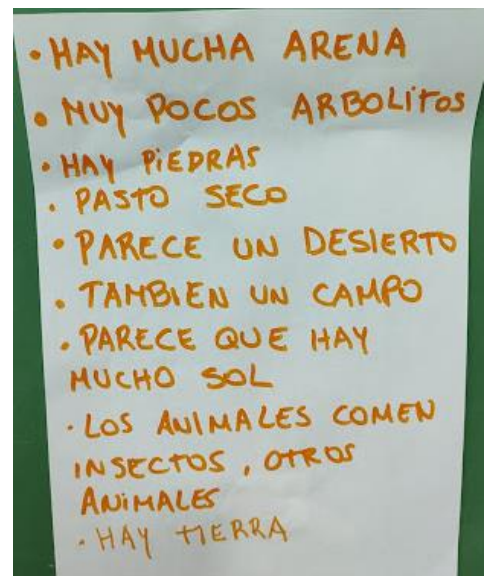 • HAY MUCHA ARENA
• MUY POCOS ARBOLITOS
• HAY PIEDRAS
• PASTO SECO
• PARECE UN DESIERTO
• TAMBIEN UN CAMPO
• PARECE QUE HAY
MUCHO SOL
• LOS ANIMALES COMEN
INSECTOS, OTROS
ANIMALES
• HAY TIERRA